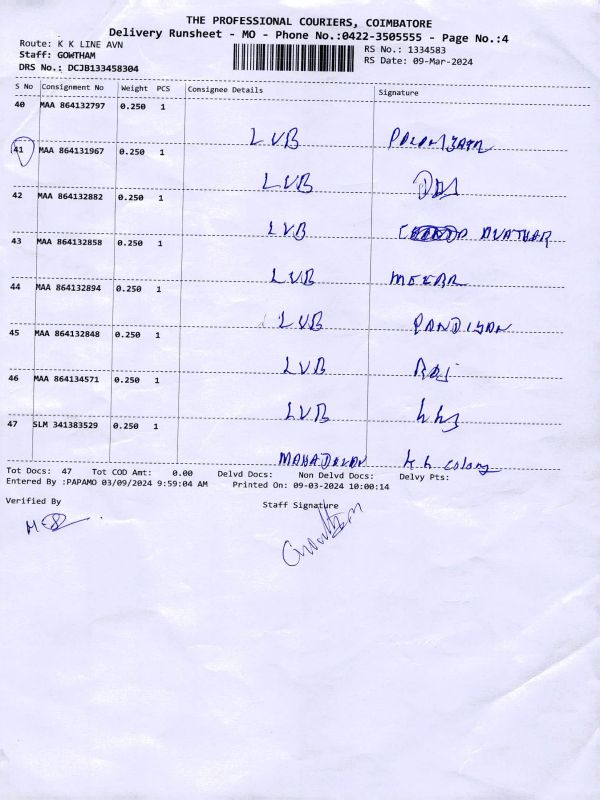 THE PROFESSIONAL COURIERS, COIMBATORE
Delivery Runsheet - MO - Phone No.:0422-3505555 - Page No.:4
Route: K K LINE AVN
Staff: GOWTHAM
DRS No.: DCJB133458304
RS No.: 1334583
RS Date: 09-Mar-2024
S No Consignment No Weight PCS Consignee Details Signature
40 MAA 864132797 0.250 1
LVB
41 MAA 864131967 0.250 1
LVB
42 MAA 864132882 0.250 1
LVB AVATHAR
43 MAA 864132858 0.250 1
LVB MEERA
44 MAA 864132894 0.250 1
LVB PANDIYAN
45 MAA 864132848 0.250 1
LVB Raj
46 MAA 864134571 0.250 1
LVB
47 SLM 341383529 0.250 1
MAHADEVAN k k colony
Tot Docs: 47 Tot COD Amt: 0.00 Delvd Docs: Non Delvd Docs: Delvy Pts:
Entered By :PAPAMO 03/09/2024 9:59:04 AM Printed On: 09-03-2024 10:00:14
Verified By
Staff Signature
Gowtham